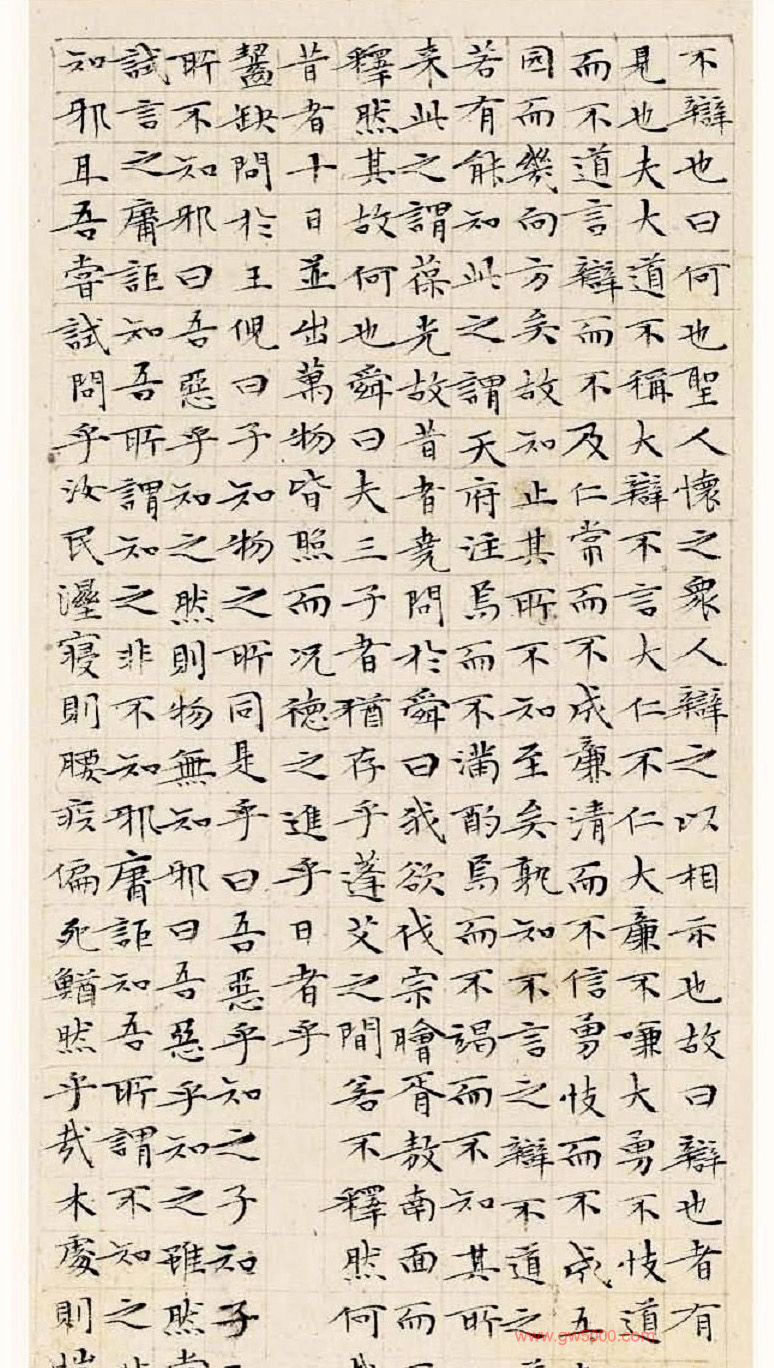 不辯也曰何也聖人懷之衆人辯之以相示也故曰辯也者有
見也夫大道不稱大辯不言大仁不仁大廉不嗛大勇不忮道
而不道言辯而不及仁常而不成廉清而不信勇忮而不成五
园而幾向方矣故知止其所不知至矣孰知不言之辯不道之
若有能知此之謂天府注焉而不滿酌焉而不竭而不知其所
来此之謂葆光故昔者堯問於舜曰我欲伐宗膾胥敖南面而
釋然其故何也舜曰夫三子者猶存乎蓬艾之間若不釋然何
昔者十日並出萬物皆照而况德之進乎日者乎
齧缺問於王倪曰子知物之所同是乎曰吾惡乎知之子知子
所不知邪曰吾惡乎知之然則物無知邪曰吾惡乎知之雖然
試言之庸詎知吾所謂知之非不知邪庸詎知吾所謂不知之
知邪且吾嘗試問乎汝民溼寢則腰疾偏死鰌然乎哉木處則